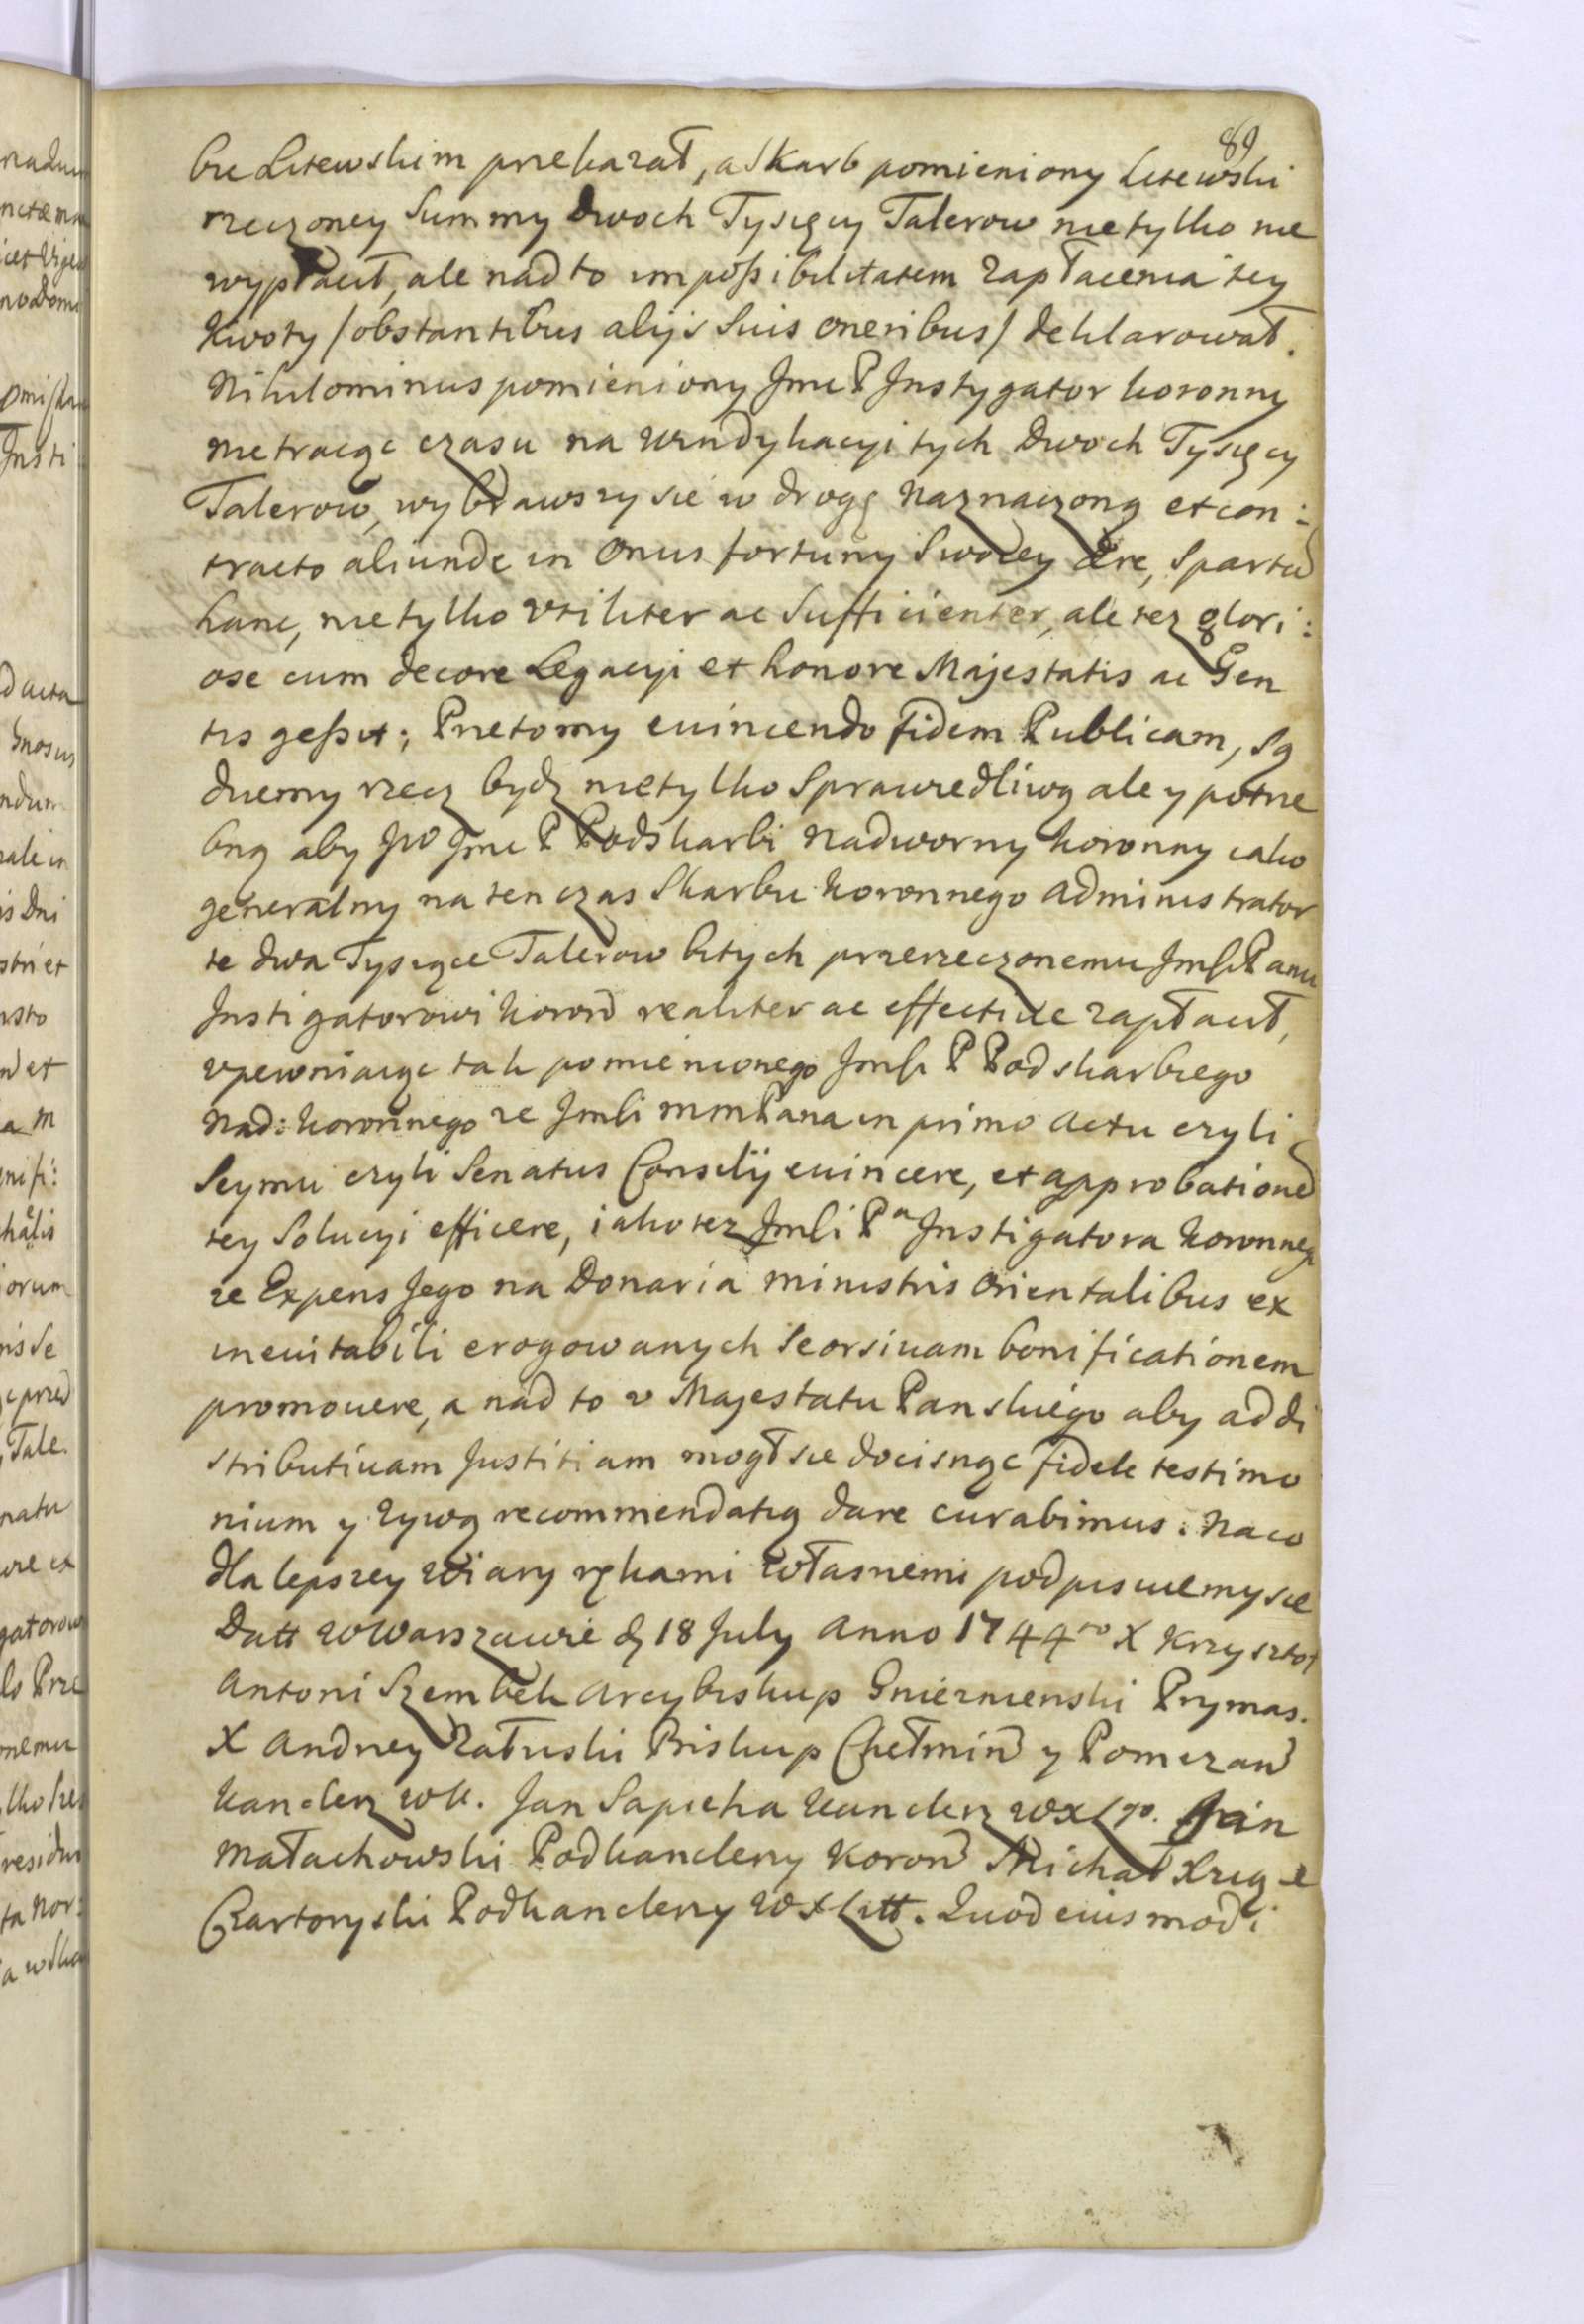 89
bie Litewskim przekazał, a Skarb pomieniony Litewski
rzeczoney Summy dwoch Tysięcy Talerow nietylko nie
wypłacił, ale nad to impossibilitatem zapłacenia tey
kwoty /obstantibus alijs Suis oneribus/ deklarował.
Nihilominus pomieniony Jmć P Instygator koronny
nietracąc czasu na windykacyi tych dwoch Tysięcy
Talerow, wybrawszy się w drogę naznaczoną et con:
tracto aliunde in onus fortuny Swoiey ære, Spartā
hanc, nietylko utiliter ac Sufficienter, ale też glori:
ose cum decore Legacyi et honore Majestatis ac Gen
tis gessit; Przetomy evincendo fidem Publicam, Są
dziemy rzecz bydz nietylko Sprawiedliwą ale y potrze
bną aby JW Jmć P Podskarbi Nadworny koronny iako
generalny na ten czas Skarbu koronnego Administrator
te dwa Tysiące Talerow bitych przerzeczonemu Jmści Panu
Instigatorowi koroñ realiter ac effective zapłacił,
upewniaiąc tak pomienionego Jmści P Podskarbiego
Nad: koronnego że Jmści mmPana in primo actu czyli
Seymu czyli Senatus Consilij evincere, et approbationē
tey Solucyi efficere, iako też Jmści Pa Instigatora koronneg
ze Expens Jego na Donaria ministris orientalibus ex
inevitabili erogowanych Seorsivam bonificationem
promovere, a nad to u Majestatu Panskiego aby ad di
stributivam Justitiam mogł się docisnąc fidele testimo
nium y żywą recommendatią dare curabimus. Na co
dla lepszey wiary rękami własnemi podpisuiemy się
Datt w Warszawie d 18 July Anno 1744to X Krzysztof
Antoni Szembek Arcybiskup Gnieznienski Prymas.
X Andrzey Załuski Biskup Chełmiñ y Pomezañ
Kanclerz wk. Jan Sapieha Kanclerz WXLgo. Jan
Małachowski Podkanclerzy Koroñ Michał Xiąże
Czartoryski Podkanclerzy WXLitt. Quod eiusmodi